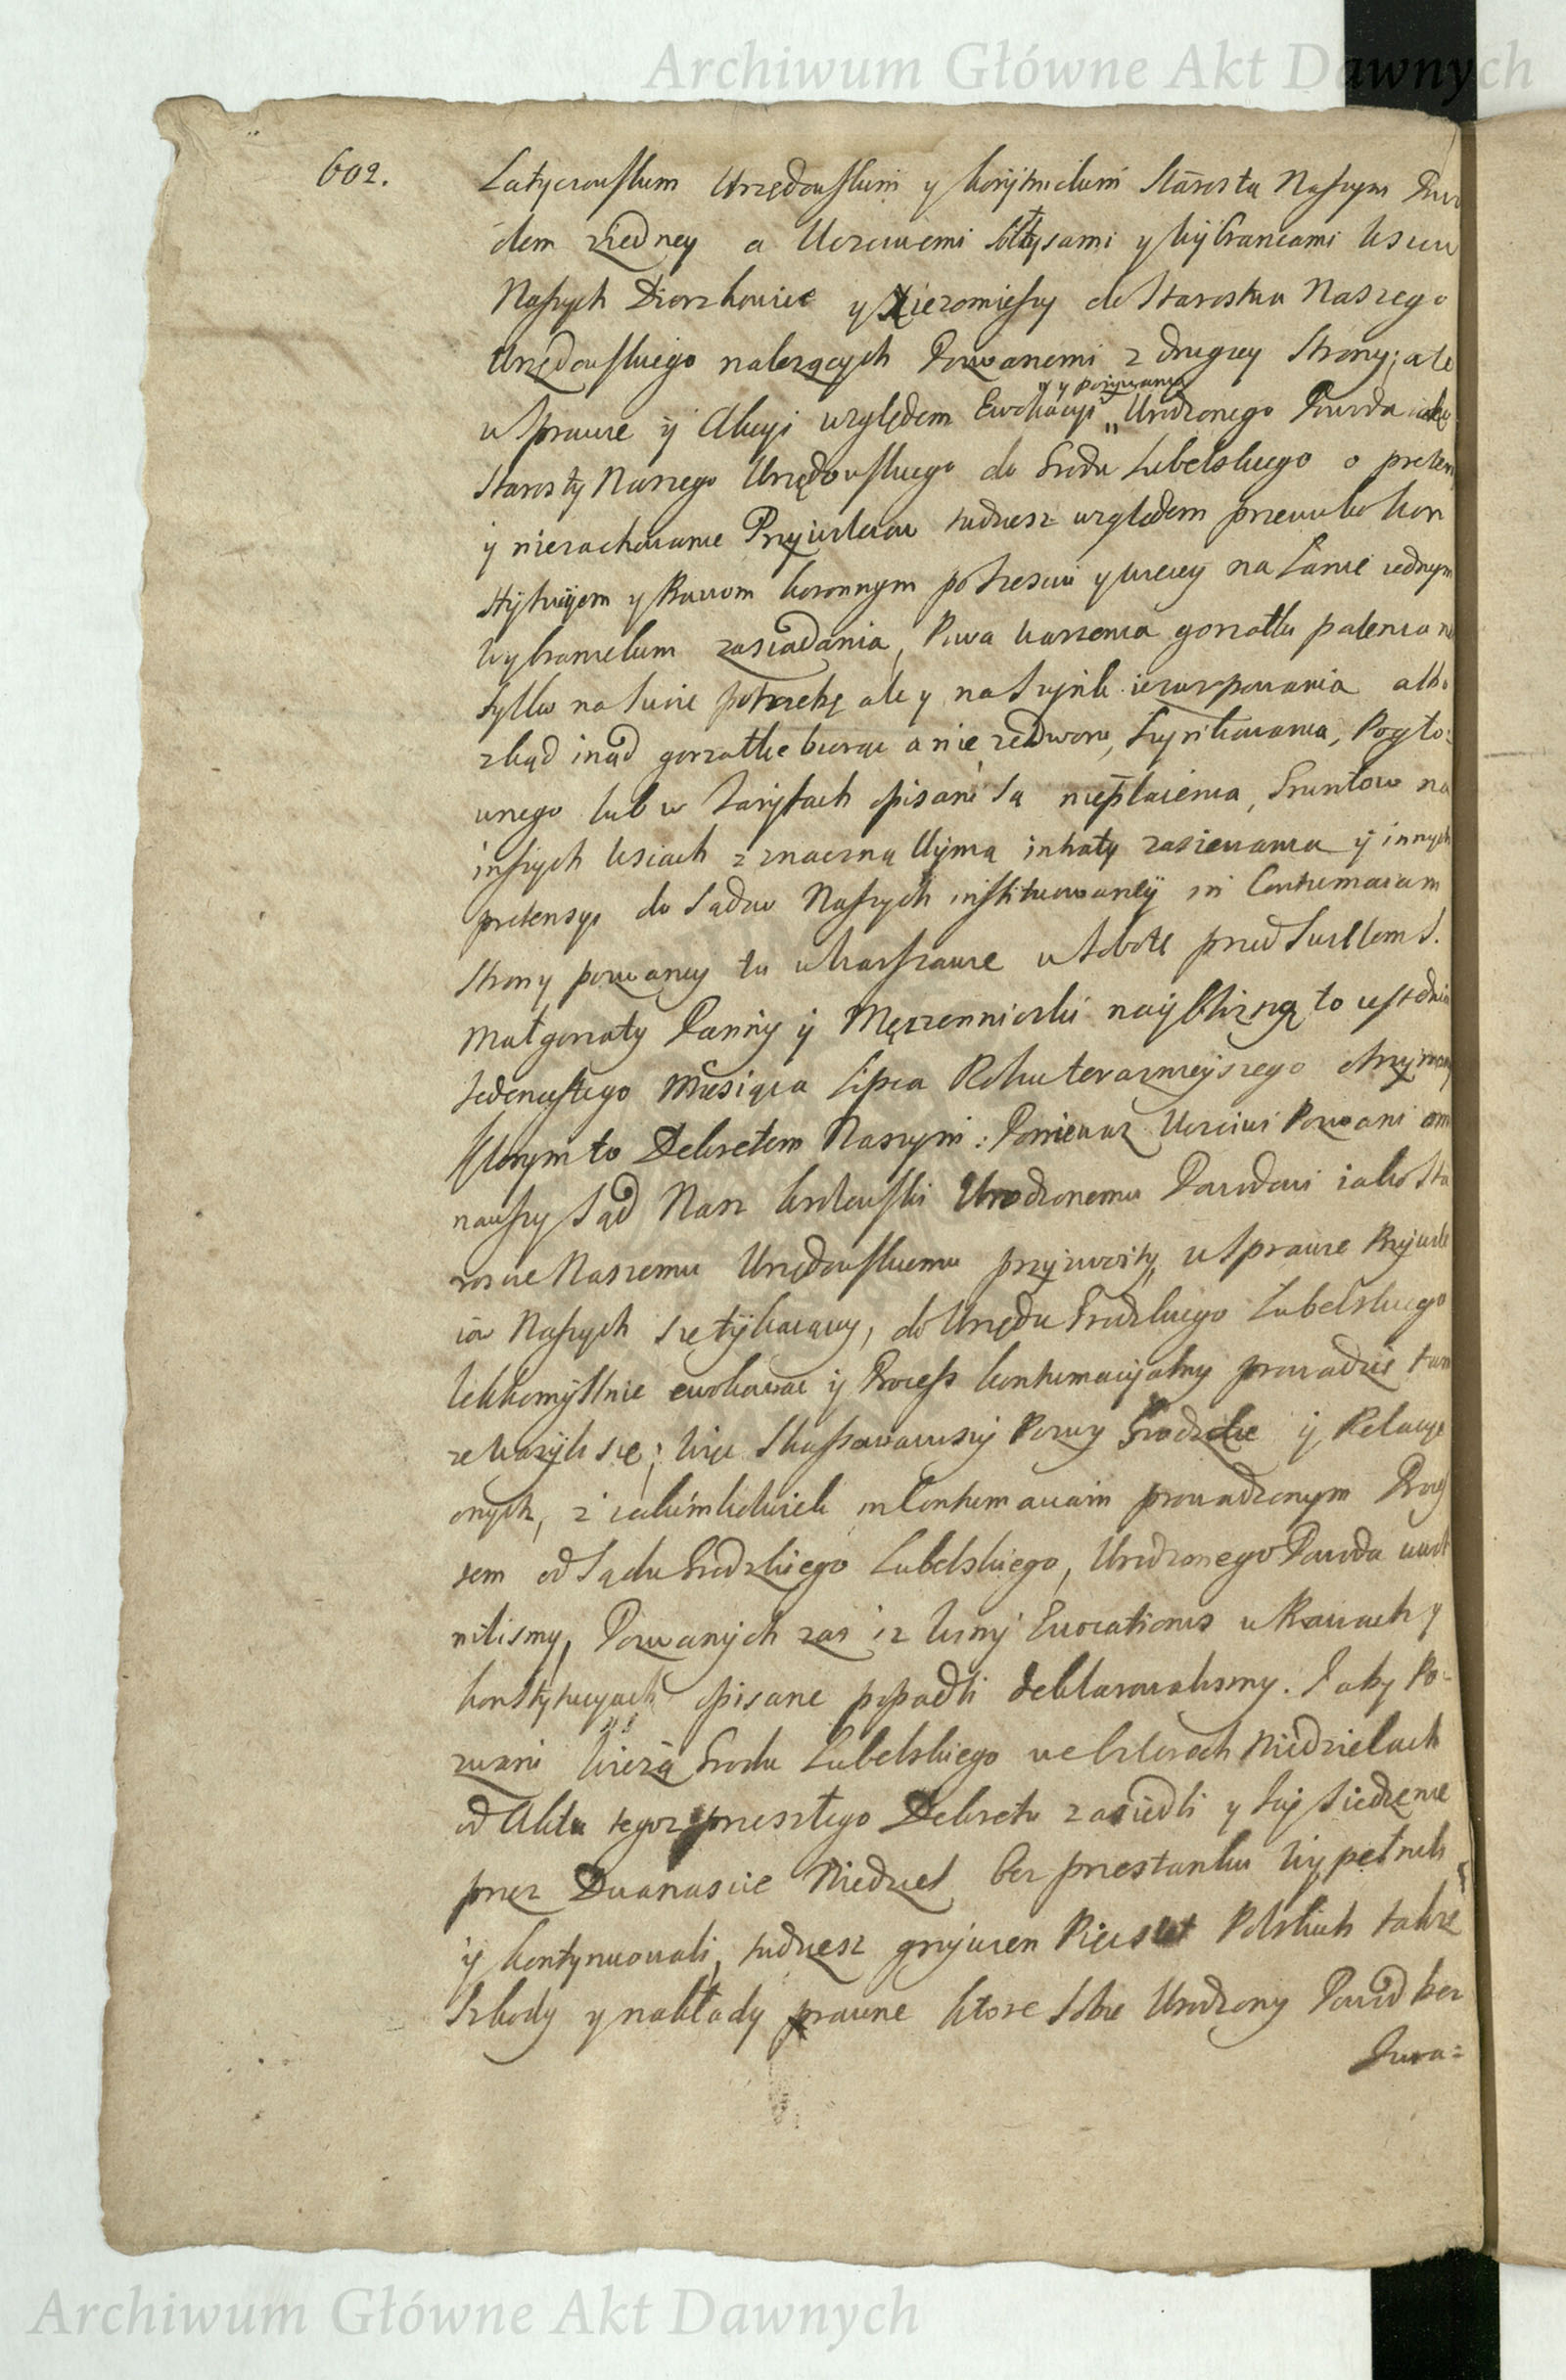 Archiwum Główne Akt Dawnych
602.
Latyczowskim Urzędowskim y Korÿtnickim Starostą Naszym Pow
dem z iedney a Uczciwemi Sołtysami y Wÿbrancami Wsiow
Naszych Dzierzkowic y Xiezomieszy do Starostwa Naszego
Urzędowskiego nalezących Pozwanemi z drugiey Strony; a to
w Sprawie ÿ Akcyi względem Ewokacyi „ Urodzonego Powoda iako
y pozywania
Starosty Naszego Urzędowskiego do Grodu Lubelskiego o preten
ÿ niezachowanie Przywileiow tudziesz względem przeciwko Kon
stÿtucÿom y Prawom Koronnym po trzech y wiecey na Łanie iednym
Wybranieckim zasiadania, Piwa warzenia gorzałki palenia nie
tylko na swoie potrzebę ale y na Szynk uzurpowania albo
zkąd inąd gorzałke biorąc a nie ze dworu, Szynkowania, Pogło:
wnego lub w Taryfach opisani są niepłacenia, Gruntow na
inszych Wsiach z znaczną Uÿmą intraty zasiewania ÿ innych
pretensyi do Sądow Naszych instituowaneÿ in Contumaciam
Strony pozwaney tu w Warszawie w Sobotę przed Swiętem S.
Małgorzaty Panny ÿ Męczenniczki nayblizszą to iest dnia
Jedenastego Miesiąca Lipca Roku teraznieyszego otrzymany
Ktorym to Dekretem Naszym: Poniewaz Uczciwi Pozwani omi
nąwszy Sąd Nasz Krolewski Urodzonemu Powodowi iako Sta
roscie Naszemu Urzędowskiemu przyzwoity, w Sprawie Przywile
iow Naszych się tÿkaiącey, do Urzędu Grodzkiego Lubelskiego
lekkomÿslnie ewokowac ÿ Process kontumacyalny prowadzic tam
ze wazÿli się; więc Skassowawszy Pozwy Grodzkie ÿ Relacye
onych, z iakimkolwiek in Contumaciam prowadzonym Proces
sem od Sądu Grodzkiego Lubelskiego, Urodzonego Powoda uwol
nilismy, Pozwanych zas iz winy Evocationis w Prawach y
Konstÿtucyach opisane popadli deklarowalismy. I aby Po-
zwani Wiezą Grodu Lubelskiego we czterech Niedzielach
od Aktu tegoz przeszłego Dekretu zasiedli y tey siedzenie
przez Dwanascie Niedziel bez przestanku Wypełnili
ÿ kontynuowali, tudziesz grzywien Pięcset Polskich także
Szkody y nakłady prawne ktore sobie Urodzony Powod bez
Jura=
Archiwum Główne Akt Dawnych